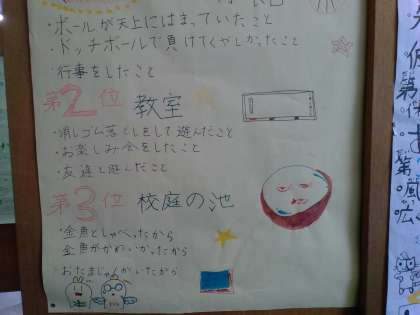 ・ボールが天上にはまっていたこと
・ドッチボールで負けてくやしかったこと
・行事をしたこと
第2位 教室
・消しゴム落としをして遊んだこと
・お楽しみ会をしたこと
・友達と遊んだこと
第3位 校庭の池
・金魚としゃべったから
金魚がかわいかったから
・おたまじゃくしがいたから